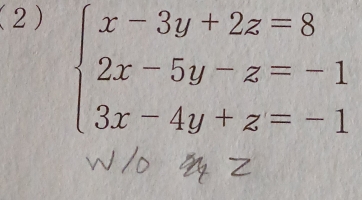 (2) x - 3y + 2z = 8
2x - 5y - z = - 1
3x - 4y + z = - 1
w/o z